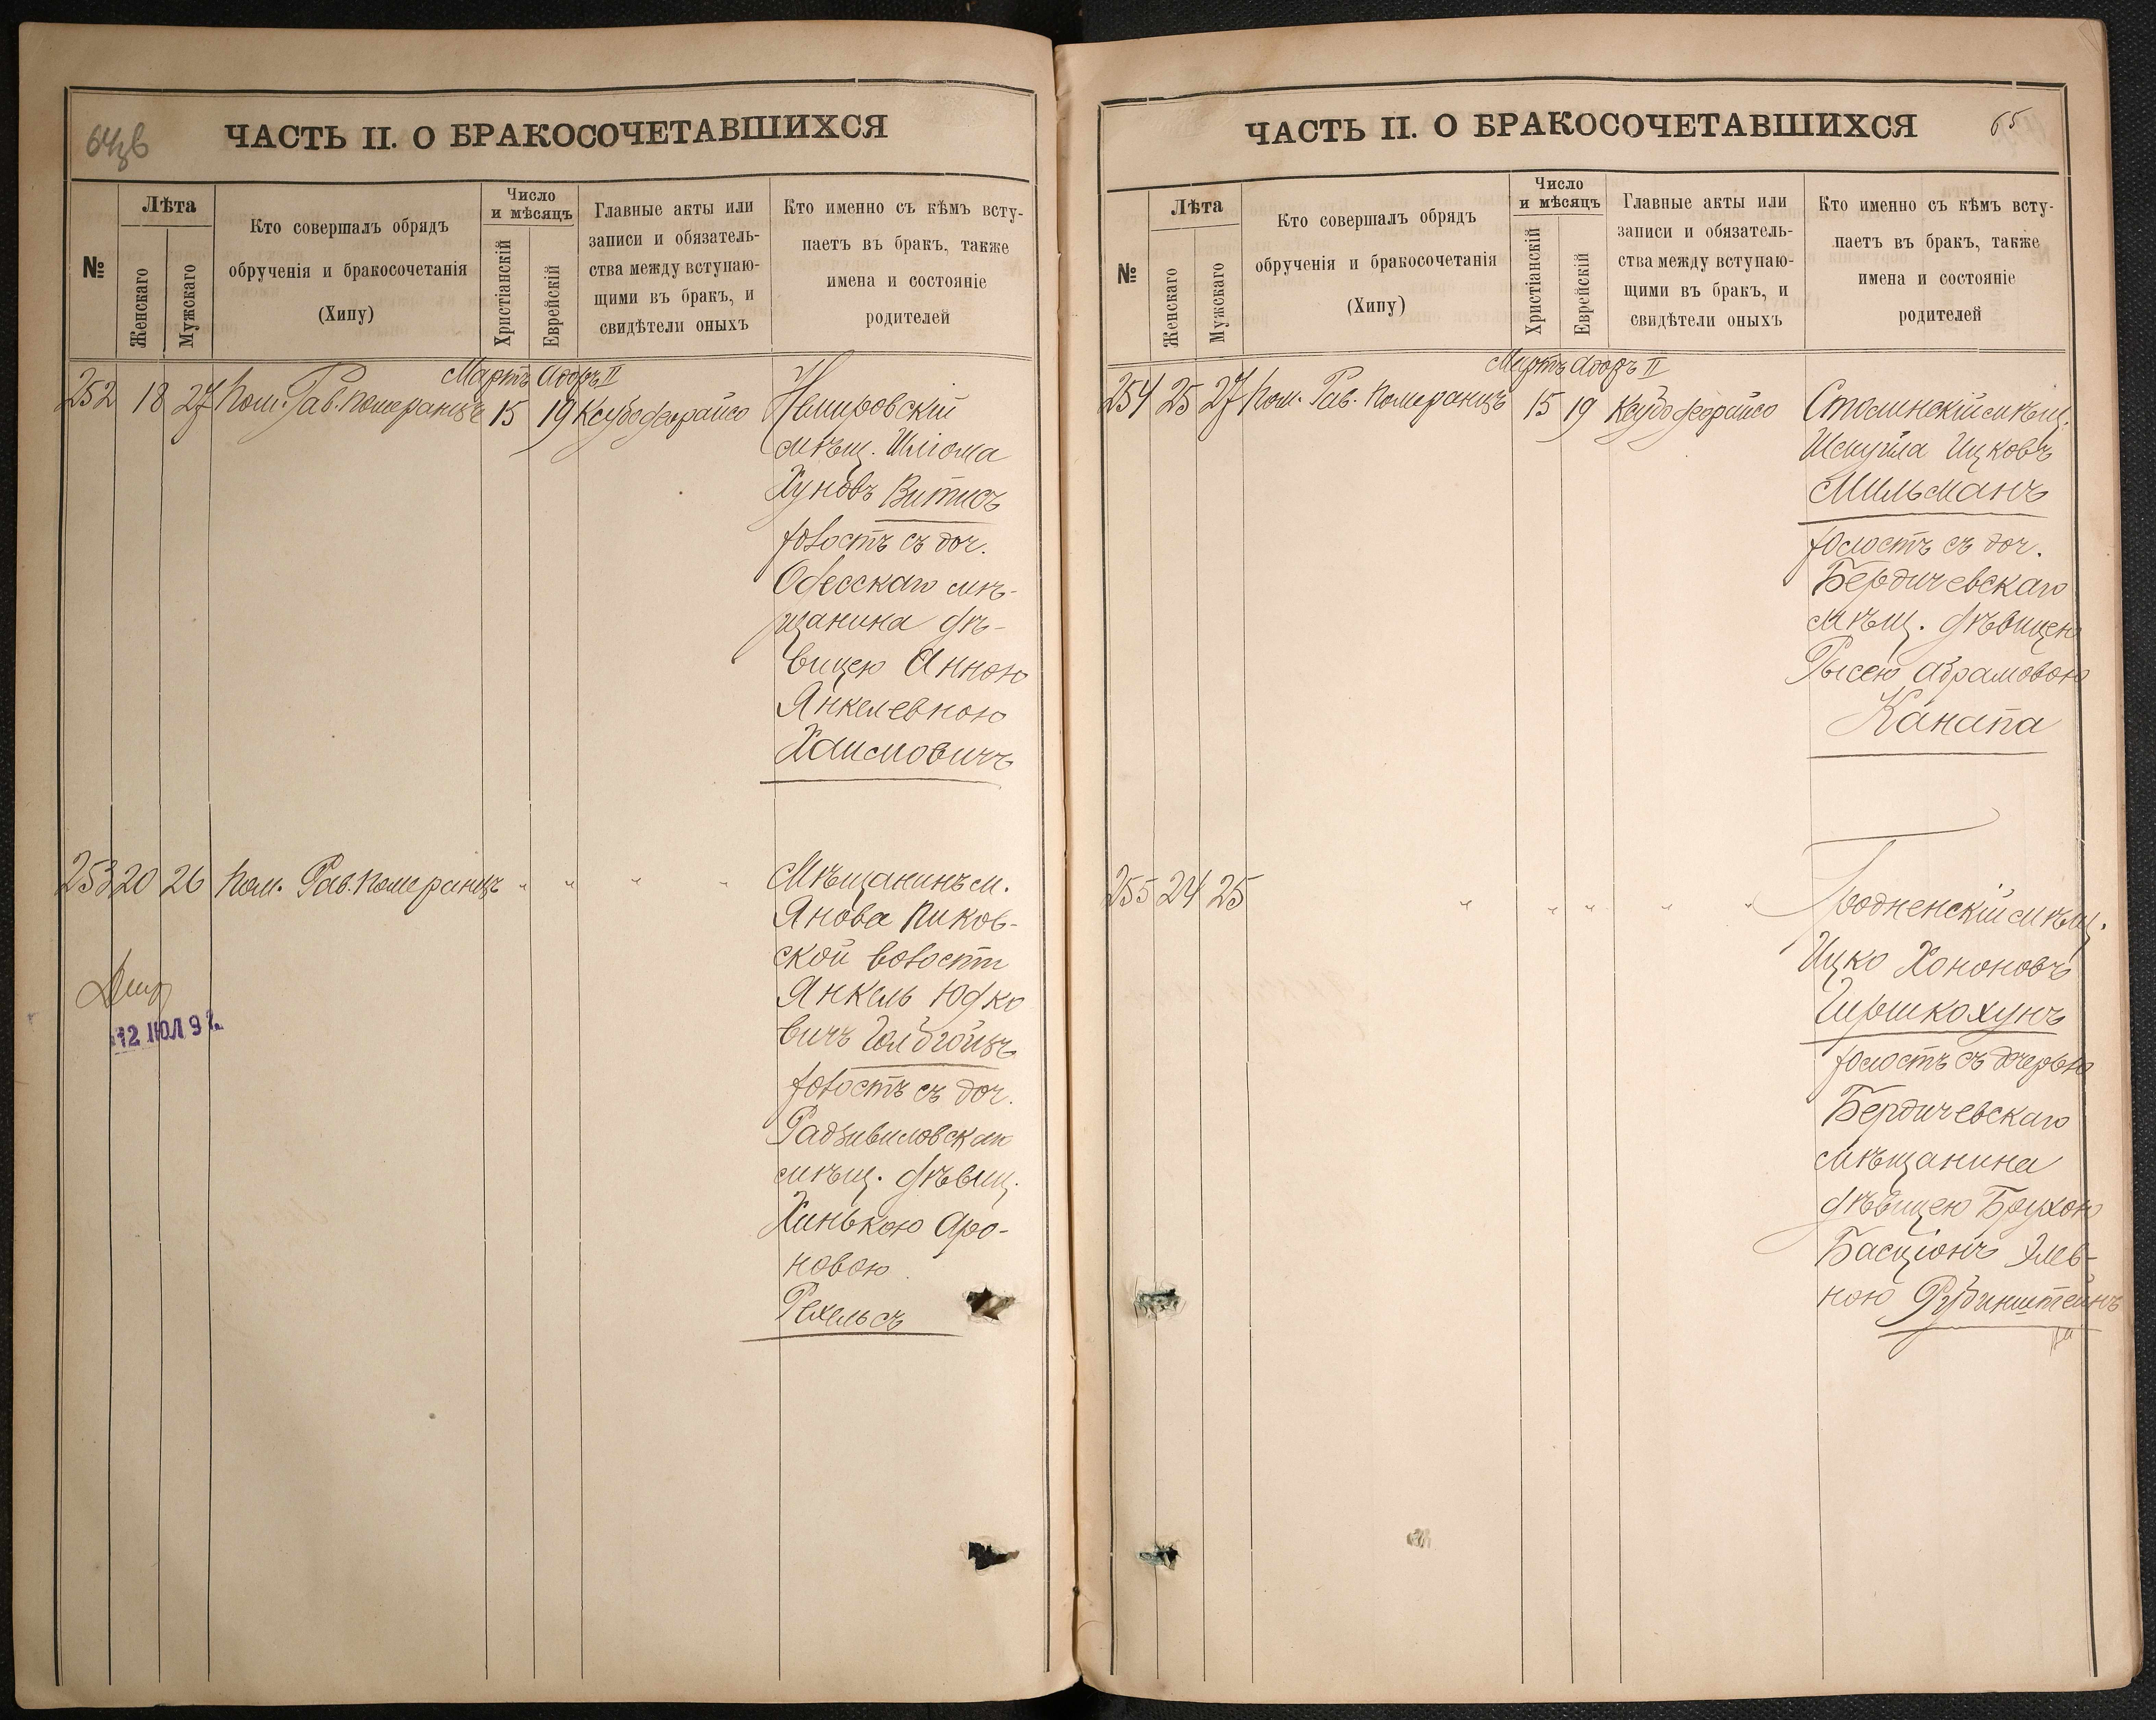 ЧАСТЬ II. О БРАКОСОЧЕТАВШИХСЯ
№
Лѣта
Женскаго
Мужскаго
Кто совершалъ обрядъ
обрученія и бракосочетанія
(Хипу)
Число
и мѣсяцъ
Христіанскій
Еврейскій
Главные акты или
записи и обязатель-
ства между вступаю-
щими въ бракъ, и
свидѣтели оныхъ
Кто именно съ кѣмъ всту-
паетъ въ бракъ, также
имена и состояніе
родителей
Мартъ Адоръ II
252 18 27 Пом. Рав. Померанцъ 15 19 Немировскій
мѣщ. Шліома
Хуновъ Витисъ
холостъ съ доч.
Одесскаго мѣ-
щанина дѣ-
вицею Анною
Янкелевною
Хаимовичъ
253 20 26 Пом. Рав. Померанцъ " " " " Мѣщанинъ м.
Янова Пиков-
ской волости
Янкель Юдко
вичъ
холостъ съ доч.
Радзивиловскаго
мѣщ. дѣвиц.
Хинькою Аро-
новою
Рехельсъ
12 ІЮЛ 97.
ЧАСТЬ II. О БРАКОСОЧЕТАВШИХСЯ
65
№
Лѣта
Женскаго
Мужскаго
Кто совершалъ обрядъ
обрученія и бракосочетанія
(Хипу)
Число
и мѣсяцъ
Христіанскій
Еврейскій
Главные акты или
записи и обязатель-
ства между вступаю-
щими въ бракъ, и
свидѣтели оныхъ
Кто именно съ кѣмъ всту-
паетъ въ бракъ, также
имена и состояніе
родителей
Мартъ Адоръ II
254 25 27 Пом. Рав. Померанцъ 15 19 Столинскій мѣщ.
Шмуйла Ицковъ
Мильманъ
холостъ съ доч.
Бердичевскаго
мѣщ. дѣвицею
Рысею Абрамовою
Канапа
255 24 25 " " " " " Гродненскій мѣщ.
Ицко Хононовъ
Гиршкохунъ
холостъ съ дочерью
Бердичевскаго
мѣщанина
дѣвицею Брухою
Басціонъ Элев-
ною Рубинштейнъ